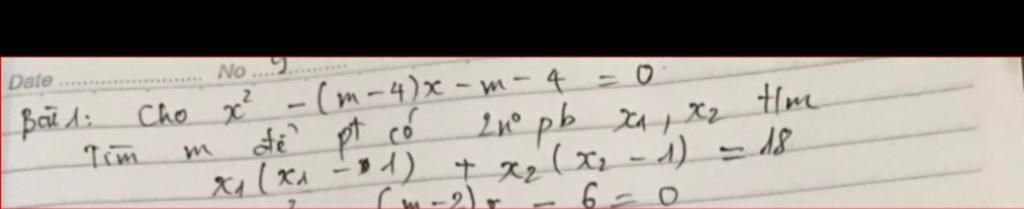 Date ........................ No ....9............
Bài 1: Cho x² - (m - 4)x - m - 4 = 0
Tìm m để pt có 2n⁰ pb x₁, x₂ t/m
x₁(x₁ - 1) + x₂(x₂ - 1) = 18
(m-2)x - 6 = 0